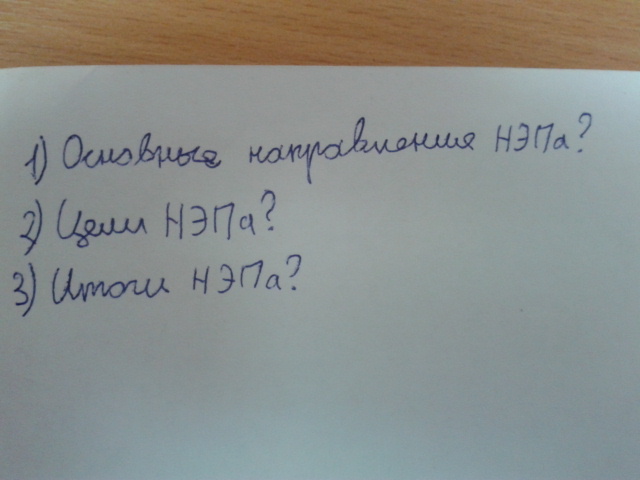 1) Основные направления НЭПа?
2) Цели НЭПа?
3) Итоги НЭПа?